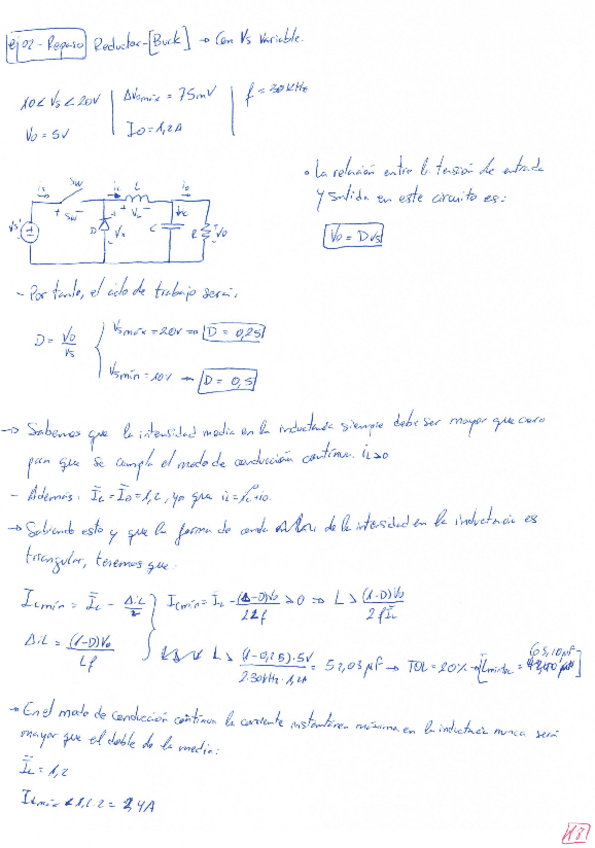 ej02-Repaso Reductor-[Buck] → Con Vs Variable.
10 < Vs < 20V
Δvomáx = 75mV
f = 30kHz
Vo = 5V
Io = 1,2A
• La relación entre la tensión de entrada
y salida en este circuito es:
Vo = D Vs
is SW iL L io
+ SW - + VL -
Vs D Vx C R Vo
- Por tanto, el ciclo de trabajo será:
D = Vo/Vs
Vsmáx = 20V ⇒ D = 0,25
Vsmín = 10V → D = 0,5
→ Sabemos que la intensidad media en la inductancia siempre debe ser mayor que cero
para que se cumpla el modo de conducción continua. iL>0
- Además: ĪL = ĪO = 1,2, ya que
→ Sabiendo esto y que la forma de onda de la intensidad en la inductancia es
triangular, tenemos que:
ILmín = ĪL - ΔiL/2
ILmín = ĪL - (1-D)Vo/2Lf > 0 ⇒ L > (1-D)Vo/2fĪL
ΔiL = (1-D)Vo/Lf
L > (1-0,25)·5V/2·30kHz·1,2A = 52,03µF → TOL = 20% →
→ En el modo de conducción continua la corriente instantánea máxima en la inductancia nunca será
mayor que el doble de la media:
ĪL = 1,2
ILmáx < 1,2·2 = 2,4A